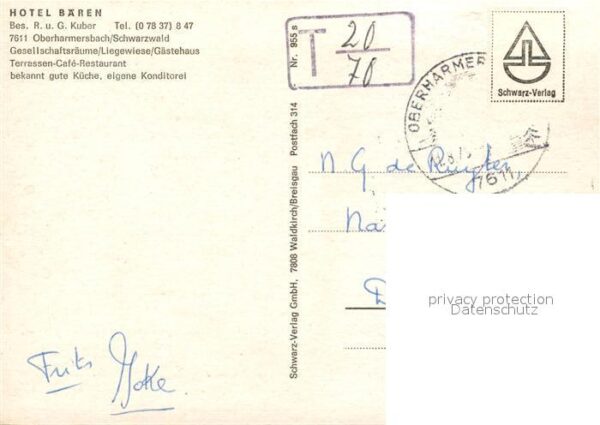 HOTEL BÄREN
Bes. R. u. G. Kuber Tel. (0 78 37) 8 47
7611 Oberharmersbach/Schwarzwald
Gesellschaftsräume/Liegewiese/Gästehaus
Terrassen-Café-Restaurant
bekannt gute Küche, eigene Konditorei
Nr. 955 s
T 20
70
OBERHARMER
7611
Schwarz-Verlag
Schwarz-Verlag GmbH, 7808 Waldkirch/Breisgau Postfach 314
N G de Ruyter,
Na
D
privacy protection
Datenschutz
Frits